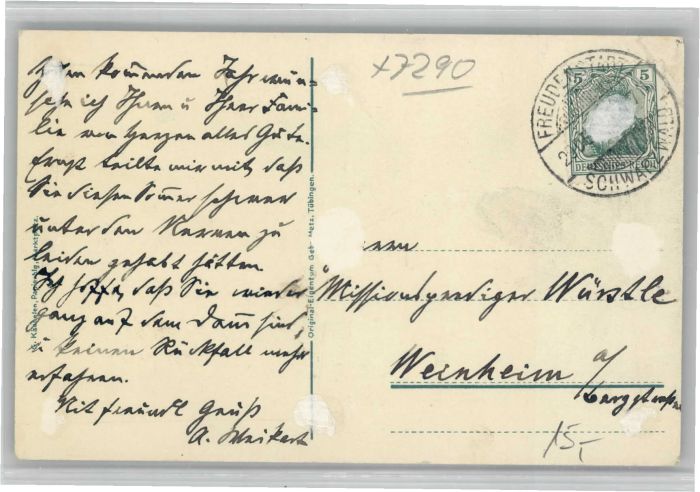 Zum kommenden Jahr wün-
sche ich Ihnen u Ihrer Fami-
lie von Herzen alles Gute.
teilte mir mit, daß
Sie diesen Sommer schwer
unter den Nerven zu
leiden gehabt hätten.
Ich hoffe, daß Sie wieder
ganz auf dem Damm sind,
u keinen Rückfall mehr
erfahren.
Mit freundl Gruß
A. Weikert
Original-Eigentum Geb. Metz, Tübingen.
x7290
FREUDENSTADT
SCHWARZWALD
5 5
DEUTSCHES REICH
Herrn
Missionsprediger Würstle
Weinheim a/
Bergstrasse
15,-